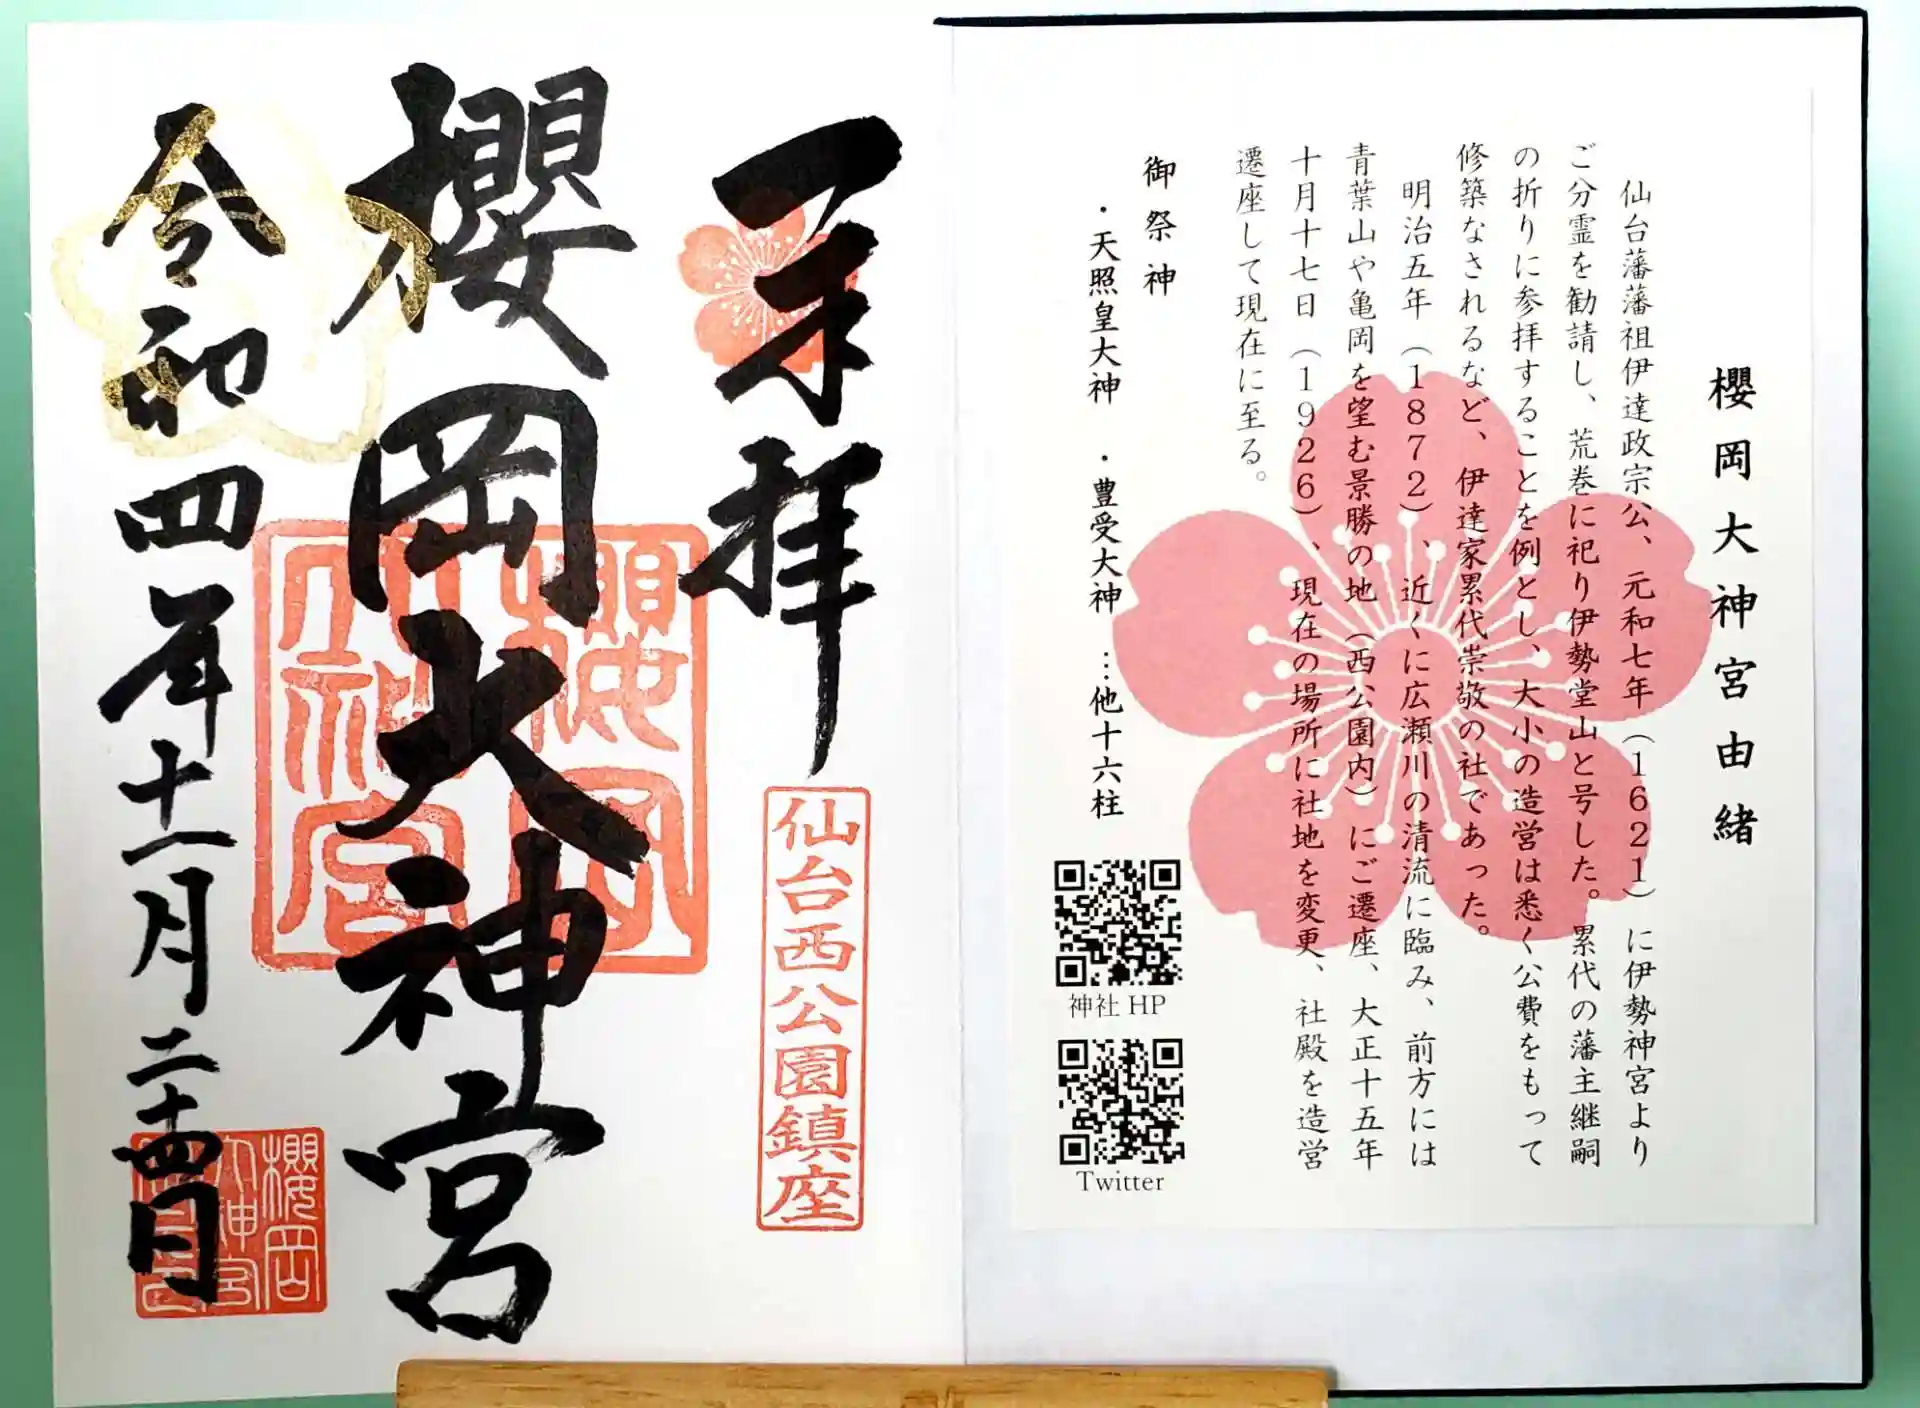 櫻岡大神宮由緒
仙台藩藩祖伊達政宗公、元和七年（１６２１）に伊勢神宮より
ご分霊を勧請し、荒巻に祀り伊勢堂山と号した。累代の藩主継嗣
の折りに参拝することを例とし、大小の造営は悉く公費をもって
修築なされるなど、伊達家累代崇敬の社であった。
明治五年（１８７２）、近くに広瀬川の清流に臨み、前方には
青葉山や亀岡を望む景勝の地（西公園内）にご遷座、大正十五年
十月十七日（１９２６）、現在の場所に社地を変更、社殿を造営
遷座して現在に至る。
御祭神
・天照皇大神　・豊受大神　…他十六柱
神社 HP
Twitter
奉拝
仙台西公園鎮座
櫻岡大神宮
櫻岡大神宮
令和四年十一月二十四日
櫻岡
大神宮